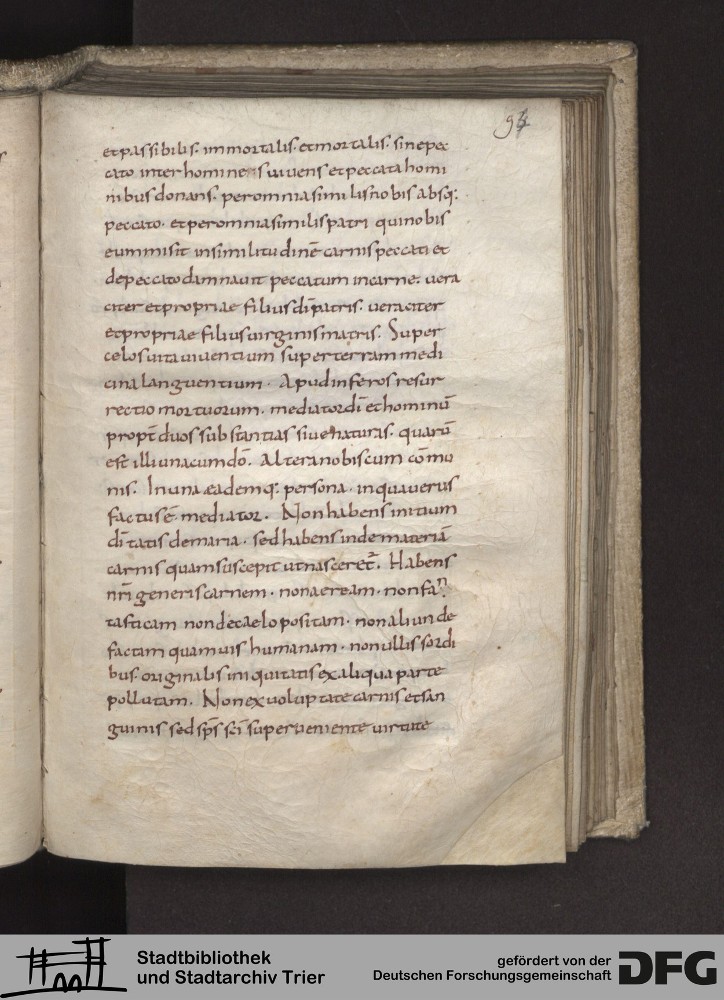 94
et passibilis. immortalis. et mortalis. sine pec
cato inter homines uiuens et peccata homi
nibus donans. per omnia similis nobis absq;
peccato. et per omnia similis patri qui nobis
eum misit in similitudinē carnis peccati et
de peccato damnauit peccatum in carne. uera
citer et propriae filius dī patris. ueraciter
et propriae filius uirginis matris. Super
celos uita uiuentium super terram medi
cina languentium. Apud inferos resur
rectio mortuorum. mediator dī et hominū
propt̄ duos substantias siue naturas. quarū
est illi una cum dō. Altera nobiscum cōmu
nis. In una eademq; persona. in qua uerus
factus ē mediator. Non habens initium
dītatis de maria. sed habens inde materiā
carnis quam suscepit ut nasceret̄. Habens
nr̄i generis carnem. non aeream. non fan
tasticam non de caelo positam. non aliunde
factam quam uis humanam. non ullis sordi
bus originalis iniquitatis ex aliqua parte
pollutam. Non ex uoluptate carnis et san
guinis sed sp̄s sc̄i superueniente uirtute
Stadtbibliothek
und Stadtarchiv Trier
gefördert von der
Deutschen Forschungsgemeinschaft
DFG